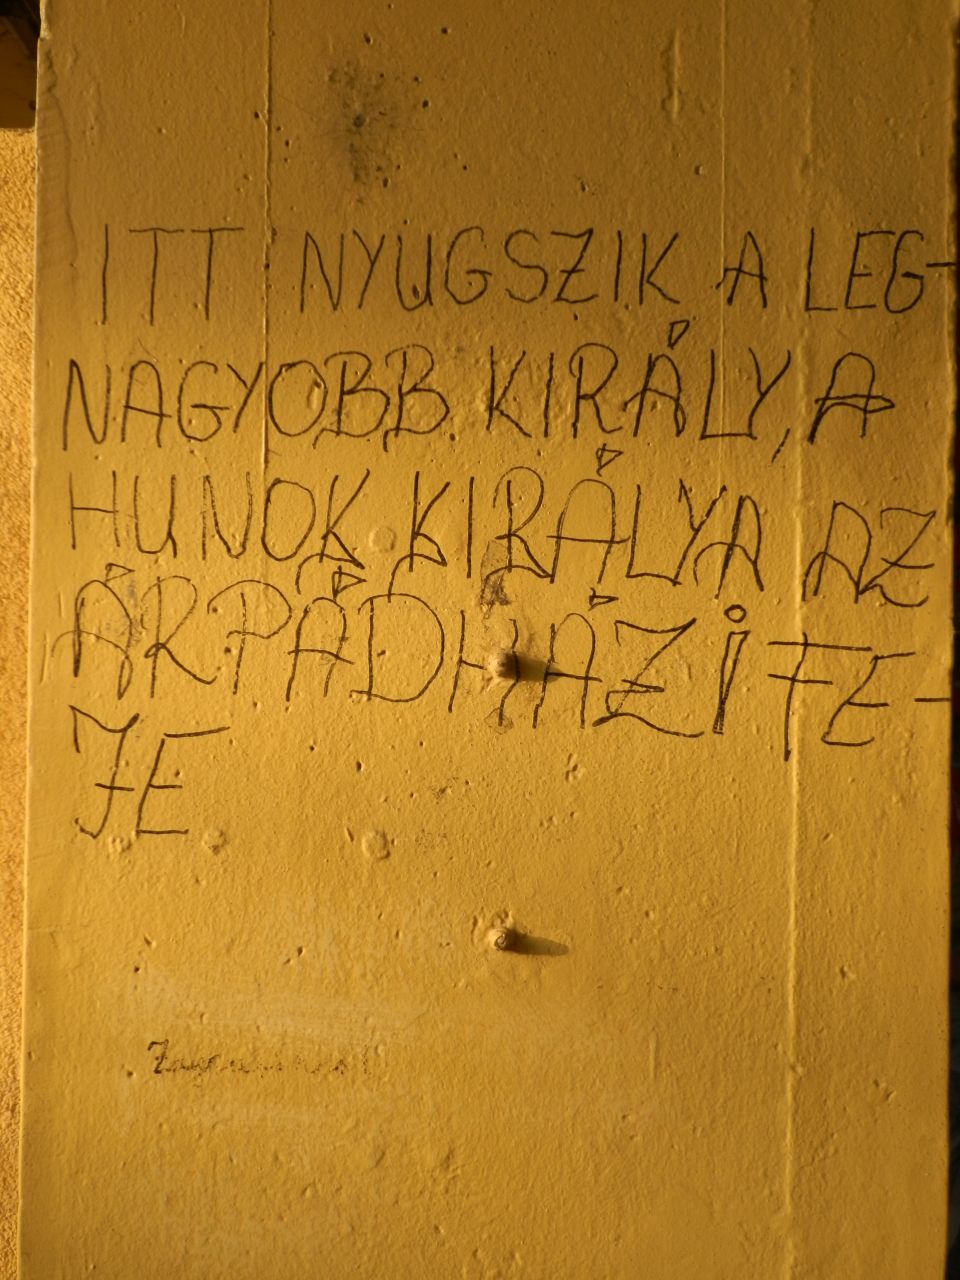 ITT NYUGSZIK A LEG-
NAGYOBB KIRÁLY, A
HUNOK KIRÁLYA AZ
ÁRPÁDHÁZI FE-
JE